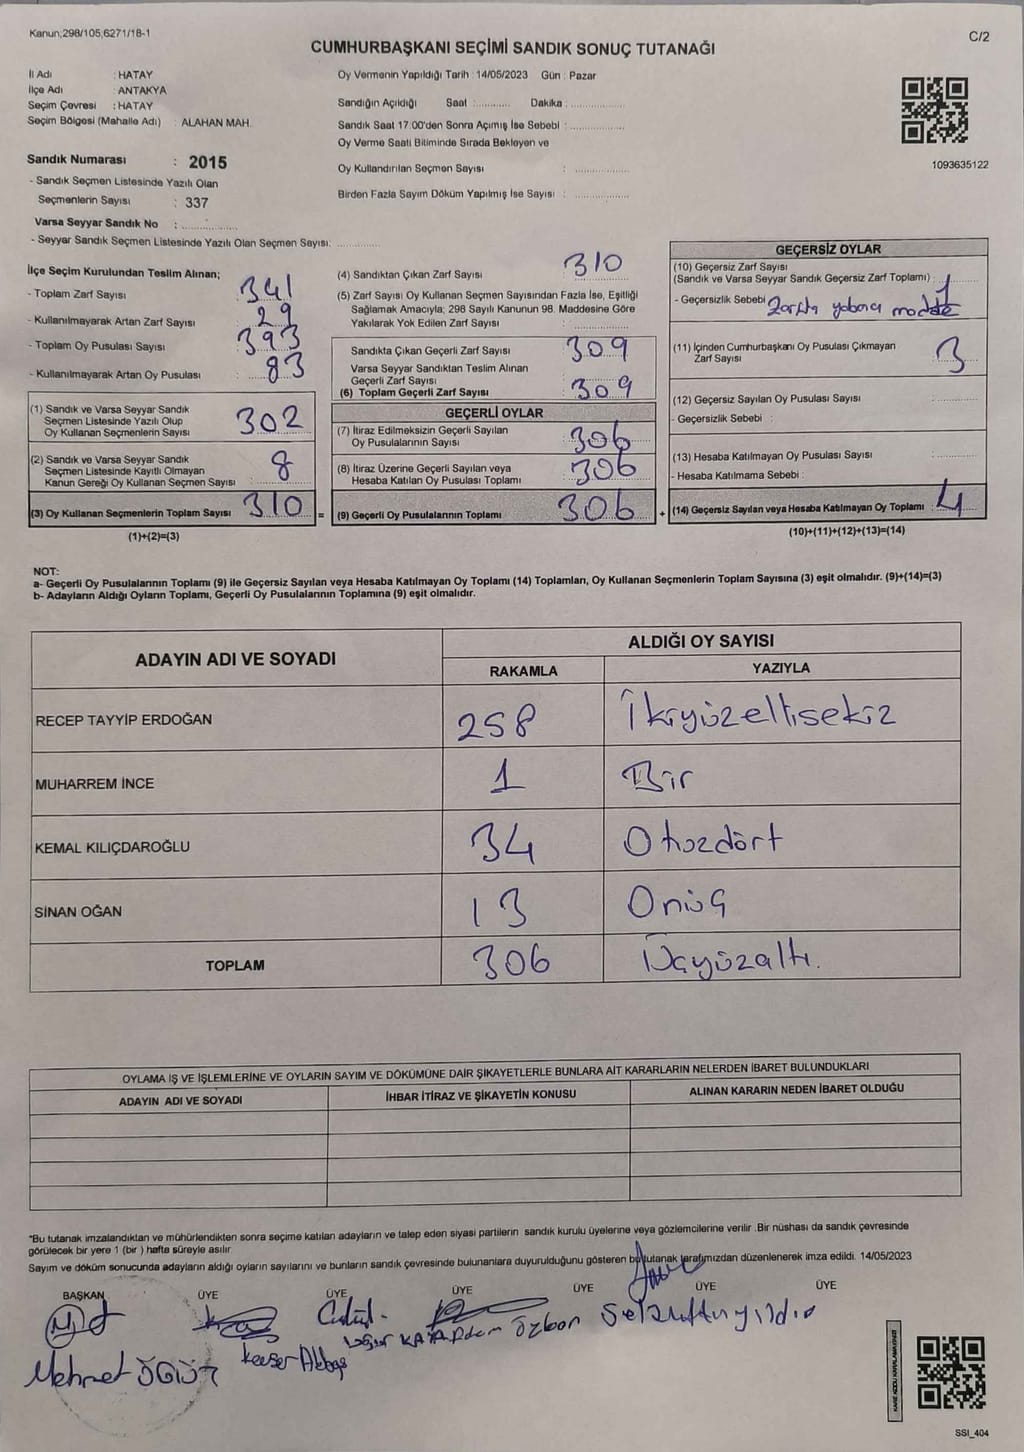 Kanun;298/105,6271/18-1
C/2
CUMHURBAŞKANI SEÇİMİ SANDIK SONUÇ TUTANAĞI
İl Adı : HATAY
İlçe Adı : ANTAKYA
Seçim Çevresi : HATAY
Seçim Bölgesi (Mahalle Adı) : ALAHAN MAH.
Sandık Numarası : 2015
- Sandık Seçmen Listesinde Yazılı Olan
Seçmenlerin Sayısı : 337
Varsa Seyyar Sandık No : ................
- Seyyar Sandık Seçmen Listesinde Yazılı Olan Seçmen Sayısı: ................
Oy Vermenin Yapıldığı Tarih : 14/05/2023 Gün : Pazar
Sandığın Açıldığı Saat ........... Dakika : ...............
Sandık Saat 17:00'den Sonra Açımış İse Sebebi : ...............
Oy Verme Saati Bitiminde Sırada Bekleyen ve
Oy Kullandırılan Seçmen Sayısı : ...............
Birden Fazla Sayım Döküm Yapılmış İse Sayısı : ...............
1093635122
İlçe Seçim Kurulundan Teslim Alınan;
- Toplam Zarf Sayısı : 341
- Kullanılmayarak Artan Zarf Sayısı : 29
- Toplam Oy Pusulası Sayısı : 393
- Kullanılmayarak Artan Oy Pusulası : 83
(1) Sandık ve Varsa Seyyar Sandık
Seçmen Listesinde Yazılı Olup
Oy Kullanan Seçmenlerin Sayısı 302
(2) Sandık ve Varsa Seyyar Sandık
Seçmen Listesinde Kayıtlı Olmayan
Kanun Gereği Oy Kullanan Seçmen Sayısı : 8
(3) Oy Kullanan Seçmenlerin Toplam Sayısı : 310 =
(1)+(2)=(3)
(4) Sandıktan Çıkan Zarf Sayısı 310
(5) Zarf Sayısı Oy Kullanan Seçmen Sayısından Fazla İse, Eşitliği
Sağlamak Amacıyla; 298 Sayılı Kanunun 98. Maddesine Göre
Yakılarak Yok Edilen Zarf Sayısı : ...............
Sandıkta Çıkan Geçerli Zarf Sayısı 309
Varsa Seyyar Sandıktan Teslim Alınan
Geçerli Zarf Sayısı
(6) Toplam Geçerli Zarf Sayısı : 309
GEÇERLİ OYLAR
(7) İtiraz Edilmeksizin Geçerli Sayılan
Oy Pusulalarının Sayısı : 306
(8) İtiraz Üzerine Geçerli Sayılan veya
Hesaba Katılan Oy Pusulası Toplamı : 306
(9) Geçerli Oy Pusulalarının Toplamı : 306 +
GEÇERSİZ OYLAR
(10) Geçersiz Zarf Sayısı
(Sandık ve Varsa Seyyar Sandık Geçersiz Zarf Toplamı) : 1
- Geçersizlik Sebebi Zarfta yabancı madde
(11) İçinden Cumhurbaşkanı Oy Pusulası Çıkmayan
Zarf Sayısı 3
(12) Geçersiz Sayılan Oy Pusulası Sayısı : ...............
- Geçersizlik Sebebi :
(13) Hesaba Katılmayan Oy Pusulası Sayısı : ...............
- Hesaba Katılmama Sebebi :
(14) Geçersiz Sayılan veya Hesaba Katılmayan Oy Toplamı : 4
(10)+(11)+(12)+(13)=(14)
NOT:
a- Geçerli Oy Pusulalarının Toplamı (9) ile Geçersiz Sayılan veya Hesaba Katılmayan Oy Toplamı (14) Toplamları, Oy Kullanan Seçmenlerin Toplam Sayısına (3) eşit olmalıdır. (9)+(14)=(3)
b- Adayların Aldığı Oyların Toplamı, Geçerli Oy Pusulalarının Toplamına (9) eşit olmalıdır.
ADAYIN ADI VE SOYADI
ALDIĞI OY SAYISI
RAKAMLA YAZIYLA
RECEP TAYYİP ERDOĞAN 258 İkiyüzellisekiz
MUHARREM İNCE 1 Bir
KEMAL KILIÇDAROĞLU 34 Otuzdört
SİNAN OĞAN 13 Onüç
TOPLAM 306 Üçyüzaltı.
OYLAMA İŞ VE İŞLEMLERİNE VE OYLARIN SAYIM VE DÖKÜMÜNE DAİR ŞİKAYETLERLE BUNLARA AİT KARARLARIN NELERDEN İBARET BULUNDUKLARI
ADAYIN ADI VE SOYADI İHBAR İTİRAZ VE ŞİKAYETİN KONUSU ALINAN KARARIN NEDEN İBARET OLDUĞU
*Bu tutanak imzalandıktan ve mühürlendikten sonra seçime katılan adayların ve talep eden siyasi partilerin sandık kurulu üyelerine veya gözlemcilerine verilir. Bir nüshası da sandık çevresinde
görülecek bir yere 1 (bir ) hafta süreyle asılır.
Sayım ve döküm sonucunda adayların aldığı oyların sayılarını ve bunların sandık çevresinde bulunanlara duyurulduğunu gösteren bu tutanak tarafımızdan düzenlenerek imza edildi. 14/05/2023
BAŞKAN ÜYE ÜYE ÜYE ÜYE ÜYE ÜYE
Mehmet ÖĞÜT
özbon
SSI_404